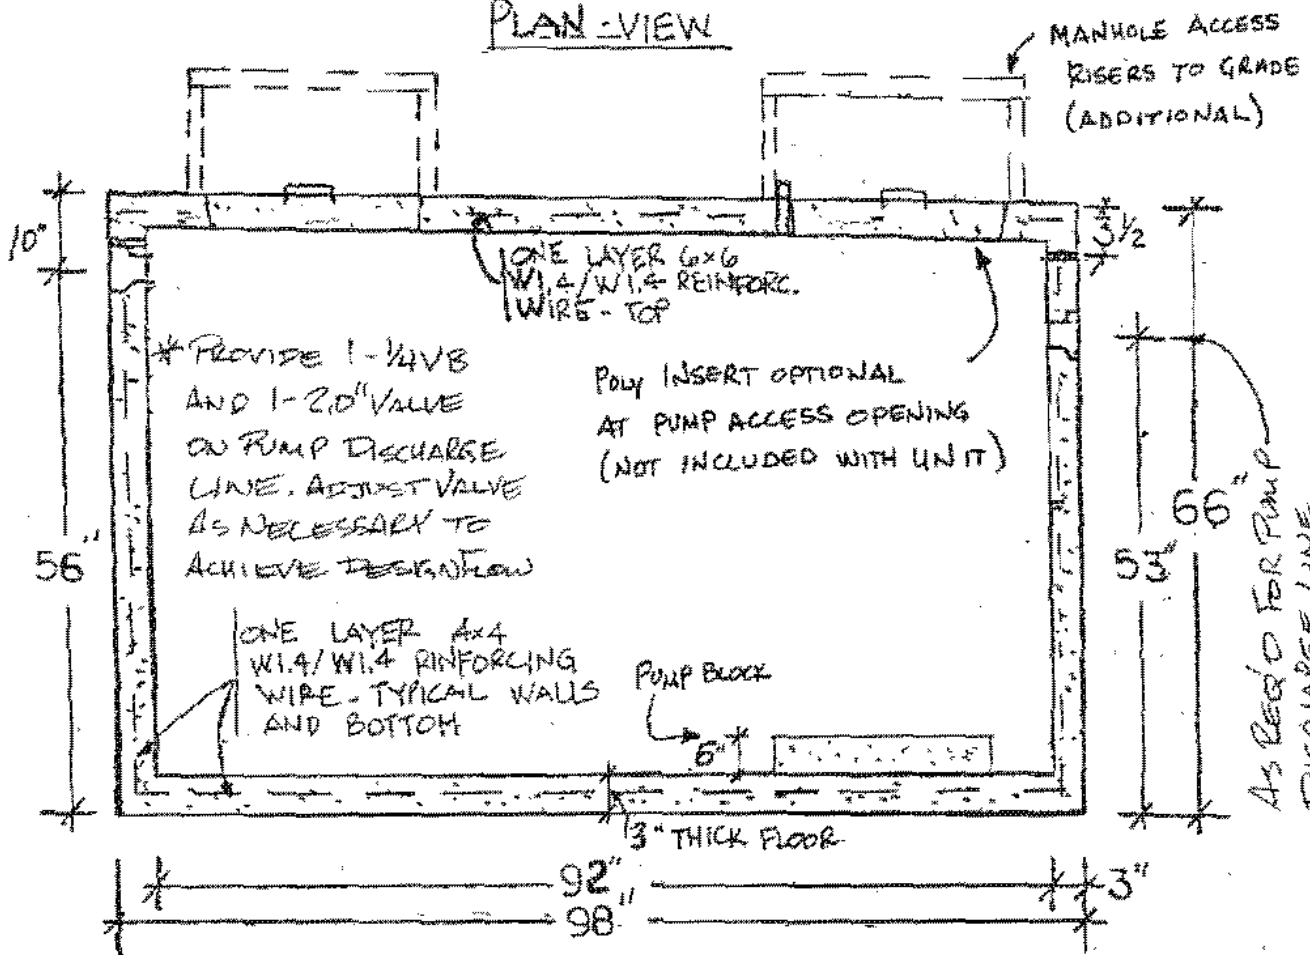 PLAN-VIEW
MANHOLE ACCESS
RISERS TO GRADE
(ADDITIONAL)
10"
3 1/2
ONE LAYER 6x6
W1.4/W1.4 REINFORC.
WIRE - TOP
* PROVIDE 1-1/4VB
AND 1-2.0" VALVE
ON PUMP DISCHARGE
LINE. ADJUST VALVE
AS NECESSARY TO
ACHIEVE DESIGN FLOW
POLY INSERT OPTIONAL
AT PUMP ACCESS OPENING
(NOT INCLUDED WITH UNIT)
56"
53"
66"
AS REQ'D FOR PUMP
DISCHARGE LINE
ONE LAYER 4x4
W1.4/W1.4 RINFORCING
WIRE - TYPICAL WALLS
AND BOTTOM
PUMP BLOCK
6"
3" THICK FLOOR
92"
3"
98"